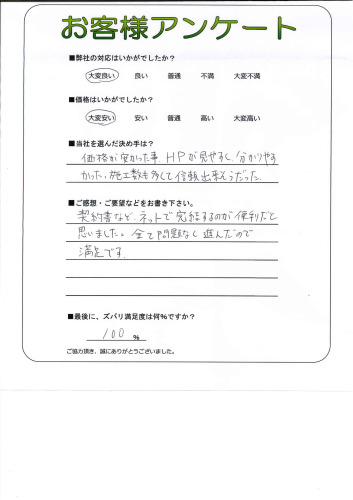 お客様アンケート
■弊社の対応はいかがでしたか？
大変良い 良い 普通 不満 大変不満
■価格はいかがでしたか？
大変安い 安い 普通 高い 大変高い
■当社を選んだ決め手は？
価格が安かった事、HPが見やすく、分かりやす
かった。施工数も多くて信頼出来そうだった。
■ご感想・ご要望などをお書き下さい。
契約書など、ネットで完結するのが便利だと
思いました。全て問題なく進んだので
満足です。
■最後に、ズバリ満足度は何％ですか？
100 %
ご協力頂き、誠にありがとうございました。